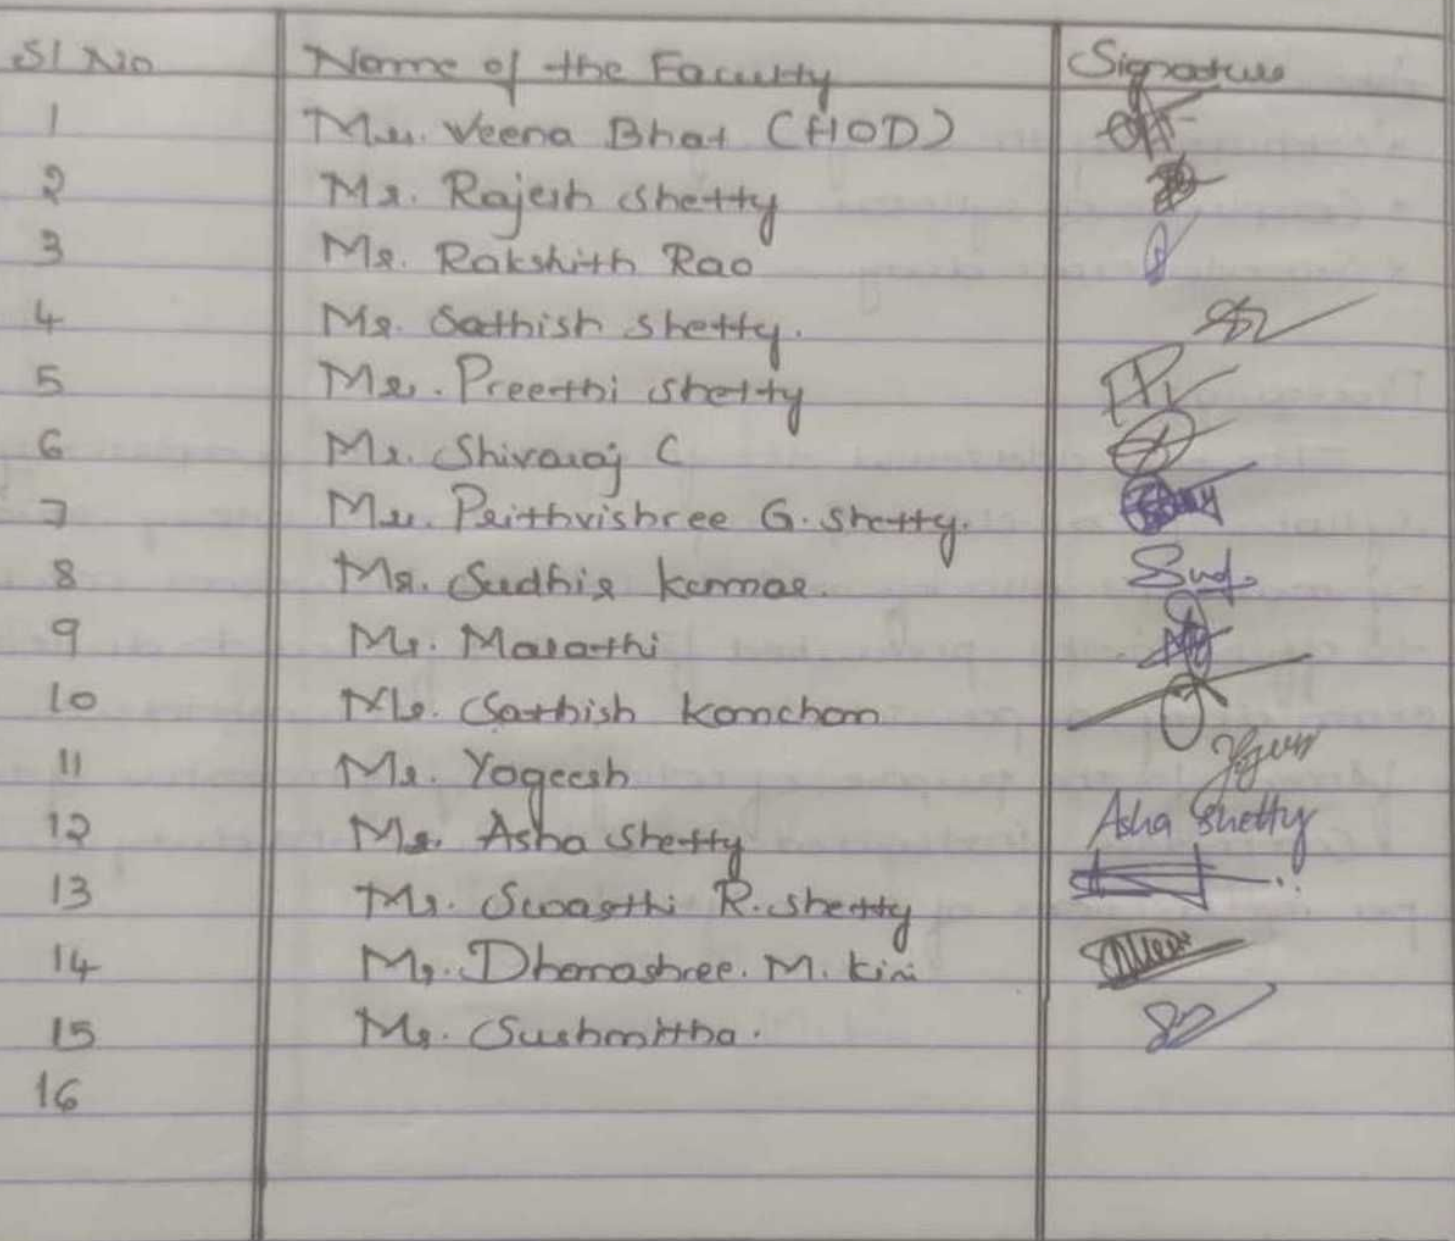 Sl No Name of the Faculty Signature
1 Mrs. Veena Bhat (HOD)
2 Mr. Rajesh Shetty
3 Mr. Rakshith Rao
4 Mr. Sathish Shetty.
5 Ms. Preethi Shetty
6 Mr. Shivaraj C
7 Mrs. Prithvishree G. Shetty.
8 Mr. Sudhir Kumar. Sud
9 Mr. Marathi
10 Mr. Sathish Kanchan
11 Mr. Yogeesh
12 Ms. Asha Shetty Asha Shetty
13 Ms. Swasthi R. Shetty
14 Ms. Dhanashree. M. Kini
15 Ms. Sushmitha.
16